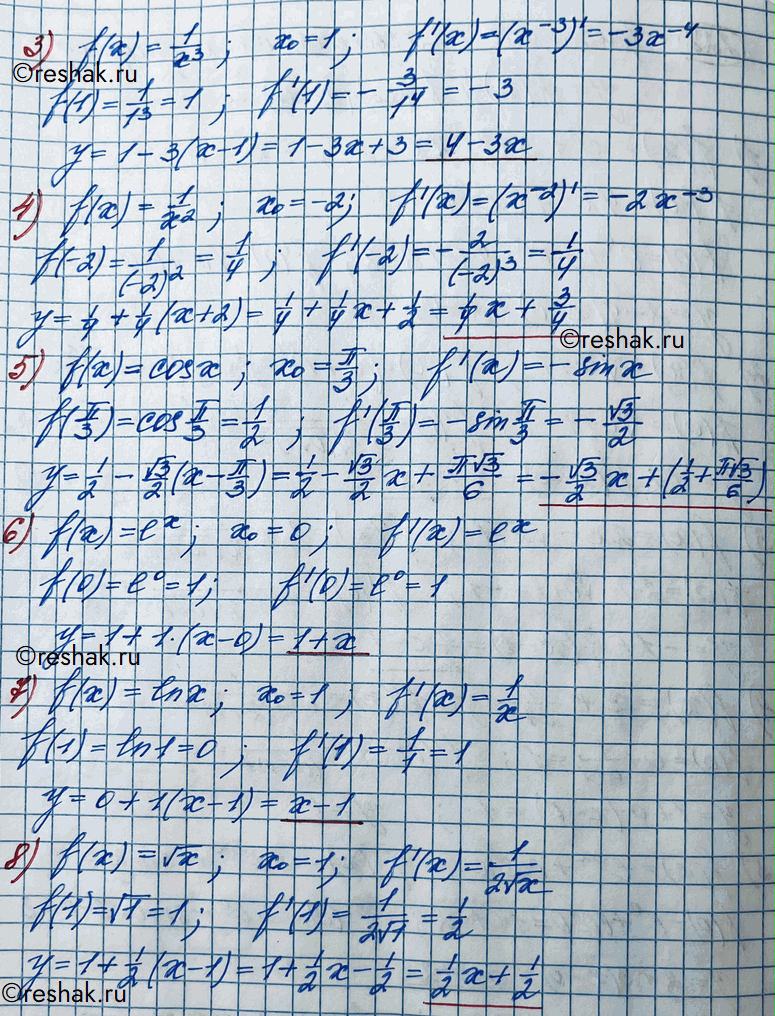 3) f(x) = 1/x³; x₀ = 1; f'(x) = (x⁻³)' = -3x⁻⁴
©reshak.ru
f(1) = 1/1³ = 1; f'(1) = -3/1⁴ = -3
y = 1 - 3(x-1) = 1 - 3x + 3 = 4 - 3x
4) f(x) = 1/x²; x₀ = -2; f'(x) = (x⁻²)' = -2x⁻³
f(-2) = 1/(-2)² = 1/4; f'(-2) = -2/(-2)³ = 1/4
y = 1/4 + 1/4(x+2) = 1/4 + 1/4x + 1/2 = 1/4x + 3/4
©reshak.ru
5) f(x) = cosx; x₀ = π/3; f'(x) = -sinx
f(π/3) = cos π/3 = 1/2; f'(π/3) = -sin π/3 = -√3/2
y = 1/2 - √3/2(x - π/3) = 1/2 - √3/2x + π√3/6 = -√3/2x + (1/2 + π√3/6)
6) f(x) = eˣ; x₀ = 0; f'(x) = eˣ
f(0) = e⁰ = 1; f'(0) = e⁰ = 1
y = 1 + 1·(x-0) = 1 + x
©reshak.ru
7) f(x) = lnx; x₀ = 1; f'(x) = 1/x
f(1) = ln1 = 0; f'(1) = 1/1 = 1
y = 0 + 1(x-1) = x - 1
8) f(x) = √x; x₀ = 1; f'(x) = 1/2√x
f(1) = √1 = 1; f'(1) = 1/2√1 = 1/2
y = 1 + 1/2(x-1) = 1 + 1/2x - 1/2 = 1/2x + 1/2
©reshak.ru